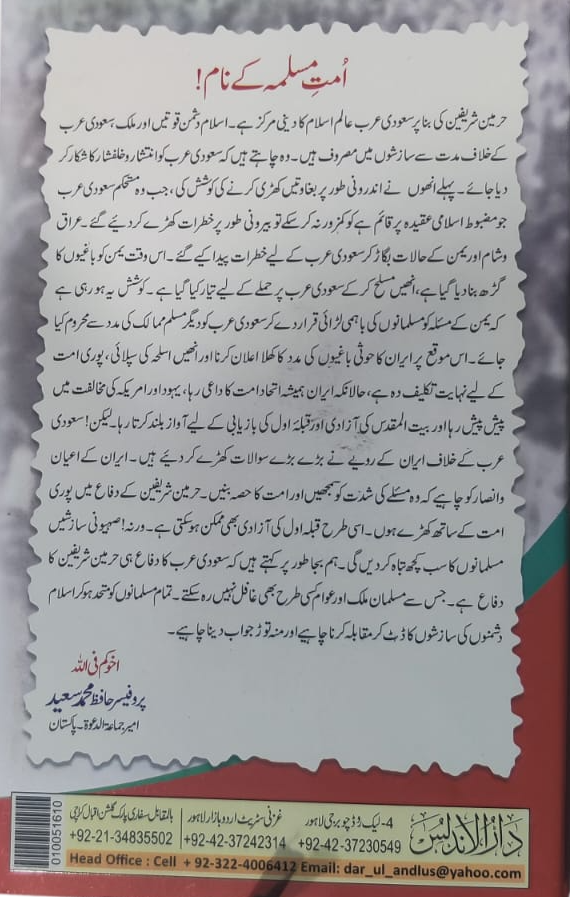 اُمتِ مسلمہ کے نام!
حرمین شریفین کی بنا پر سعودی عرب عالم اسلام کا دینی مرکز ہے۔ اسلام دشمن قوتیں اور ملک، سعودی عرب
کے خلاف مدت سے سازشوں میں مصروف ہیں۔ وہ چاہتے ہیں کہ سعودی عرب کو انتشار و خلفشار کا شکار کر
دیا جائے۔ پہلے انھوں نے اندرونی طور پر بغاوتیں کھڑی کرنے کی کوشش کی، جب وہ مستحکم سعودی عرب
جو مضبوط اسلامی عقیدہ پر قائم ہے کو کمزور نہ کر سکے تو بیرونی طور پر خطرات کھڑے کر دیئے گئے۔ عراق
و شام اور یمن کے حالات بگاڑ کر سعودی عرب کے لیے خطرات پیدا کیے گئے۔ اس وقت یمن کو باغیوں کا
گڑھ بنا دیا گیا ہے، انھیں مسلح کر کے سعودی عرب پر حملے کے لیے تیار کیا گیا ہے۔ کوشش یہ ہو رہی ہے
کہ یمن کے مسئلہ کو مسلمانوں کی باہمی لڑائی قرار دے کر سعودی عرب کو دیگر مسلم ممالک کی مدد سے محروم کیا
جائے۔ اس موقع پر ایران کا حوثی باغیوں کی مدد کا کھلا اعلان کرنا اور انھیں اسلحہ کی سپلائی، پوری امت
کے لیے نہایت تکلیف دہ ہے، حالانکہ ایران ہمیشہ اتحاد امت کا داعی رہا، یہود اور امریکہ کی مخالفت میں
پیش پیش رہا اور بیت المقدس کی آزادی اور قبلۂ اول کی بازیابی کے لیے آواز بلند کرتا رہا۔ لیکن! سعودی
عرب کے خلاف ایران کے رویے نے بڑے بڑے سوالات کھڑے کر دیئے ہیں۔ ایران کے اعیان
و انصار کو چاہیے کہ وہ مسئلے کی شدت کو سمجھیں اور امت کا حصہ بنیں۔ حرمین شریفین کے دفاع میں پوری
امت کے ساتھ کھڑے ہوں۔ اسی طرح قبلہ اول کی آزادی بھی ممکن ہو سکتی ہے۔ ورنہ! صہیونی سازشیں
مسلمانوں کا سب کچھ تباہ کر دیں گی۔ ہم بجا طور پر کہتے ہیں کہ سعودی عرب کا دفاع ہی حرمین شریفین کا
دفاع ہے۔ جس سے مسلمان ملک اور عوام کسی طرح بھی غافل نہیں رہ سکتے۔ تمام مسلمانوں کو متحد ہو کر اسلام
دشمنوں کی سازشوں کا ڈٹ کر مقابلہ کرنا چاہیے اور منہ توڑ جواب دینا چاہیے۔
اخوکم فی اللہ
پروفیسر حافظ محمد سعید
امیر جماعۃ الدعوۃ۔ پاکستان
دارُالاندلس
4- لیک روڈ چوبرجی لاہور
+92-42-37230549
غزنی سٹریٹ اردو بازار لاہور
+92-42-37242314
بالمقابل سفاری پارک گلشن اقبال کراچی
+92-21-34835502
Head Office : Cell + 92-322-4006412 Email: dar_ul_andlus@yahoo.com
010051610